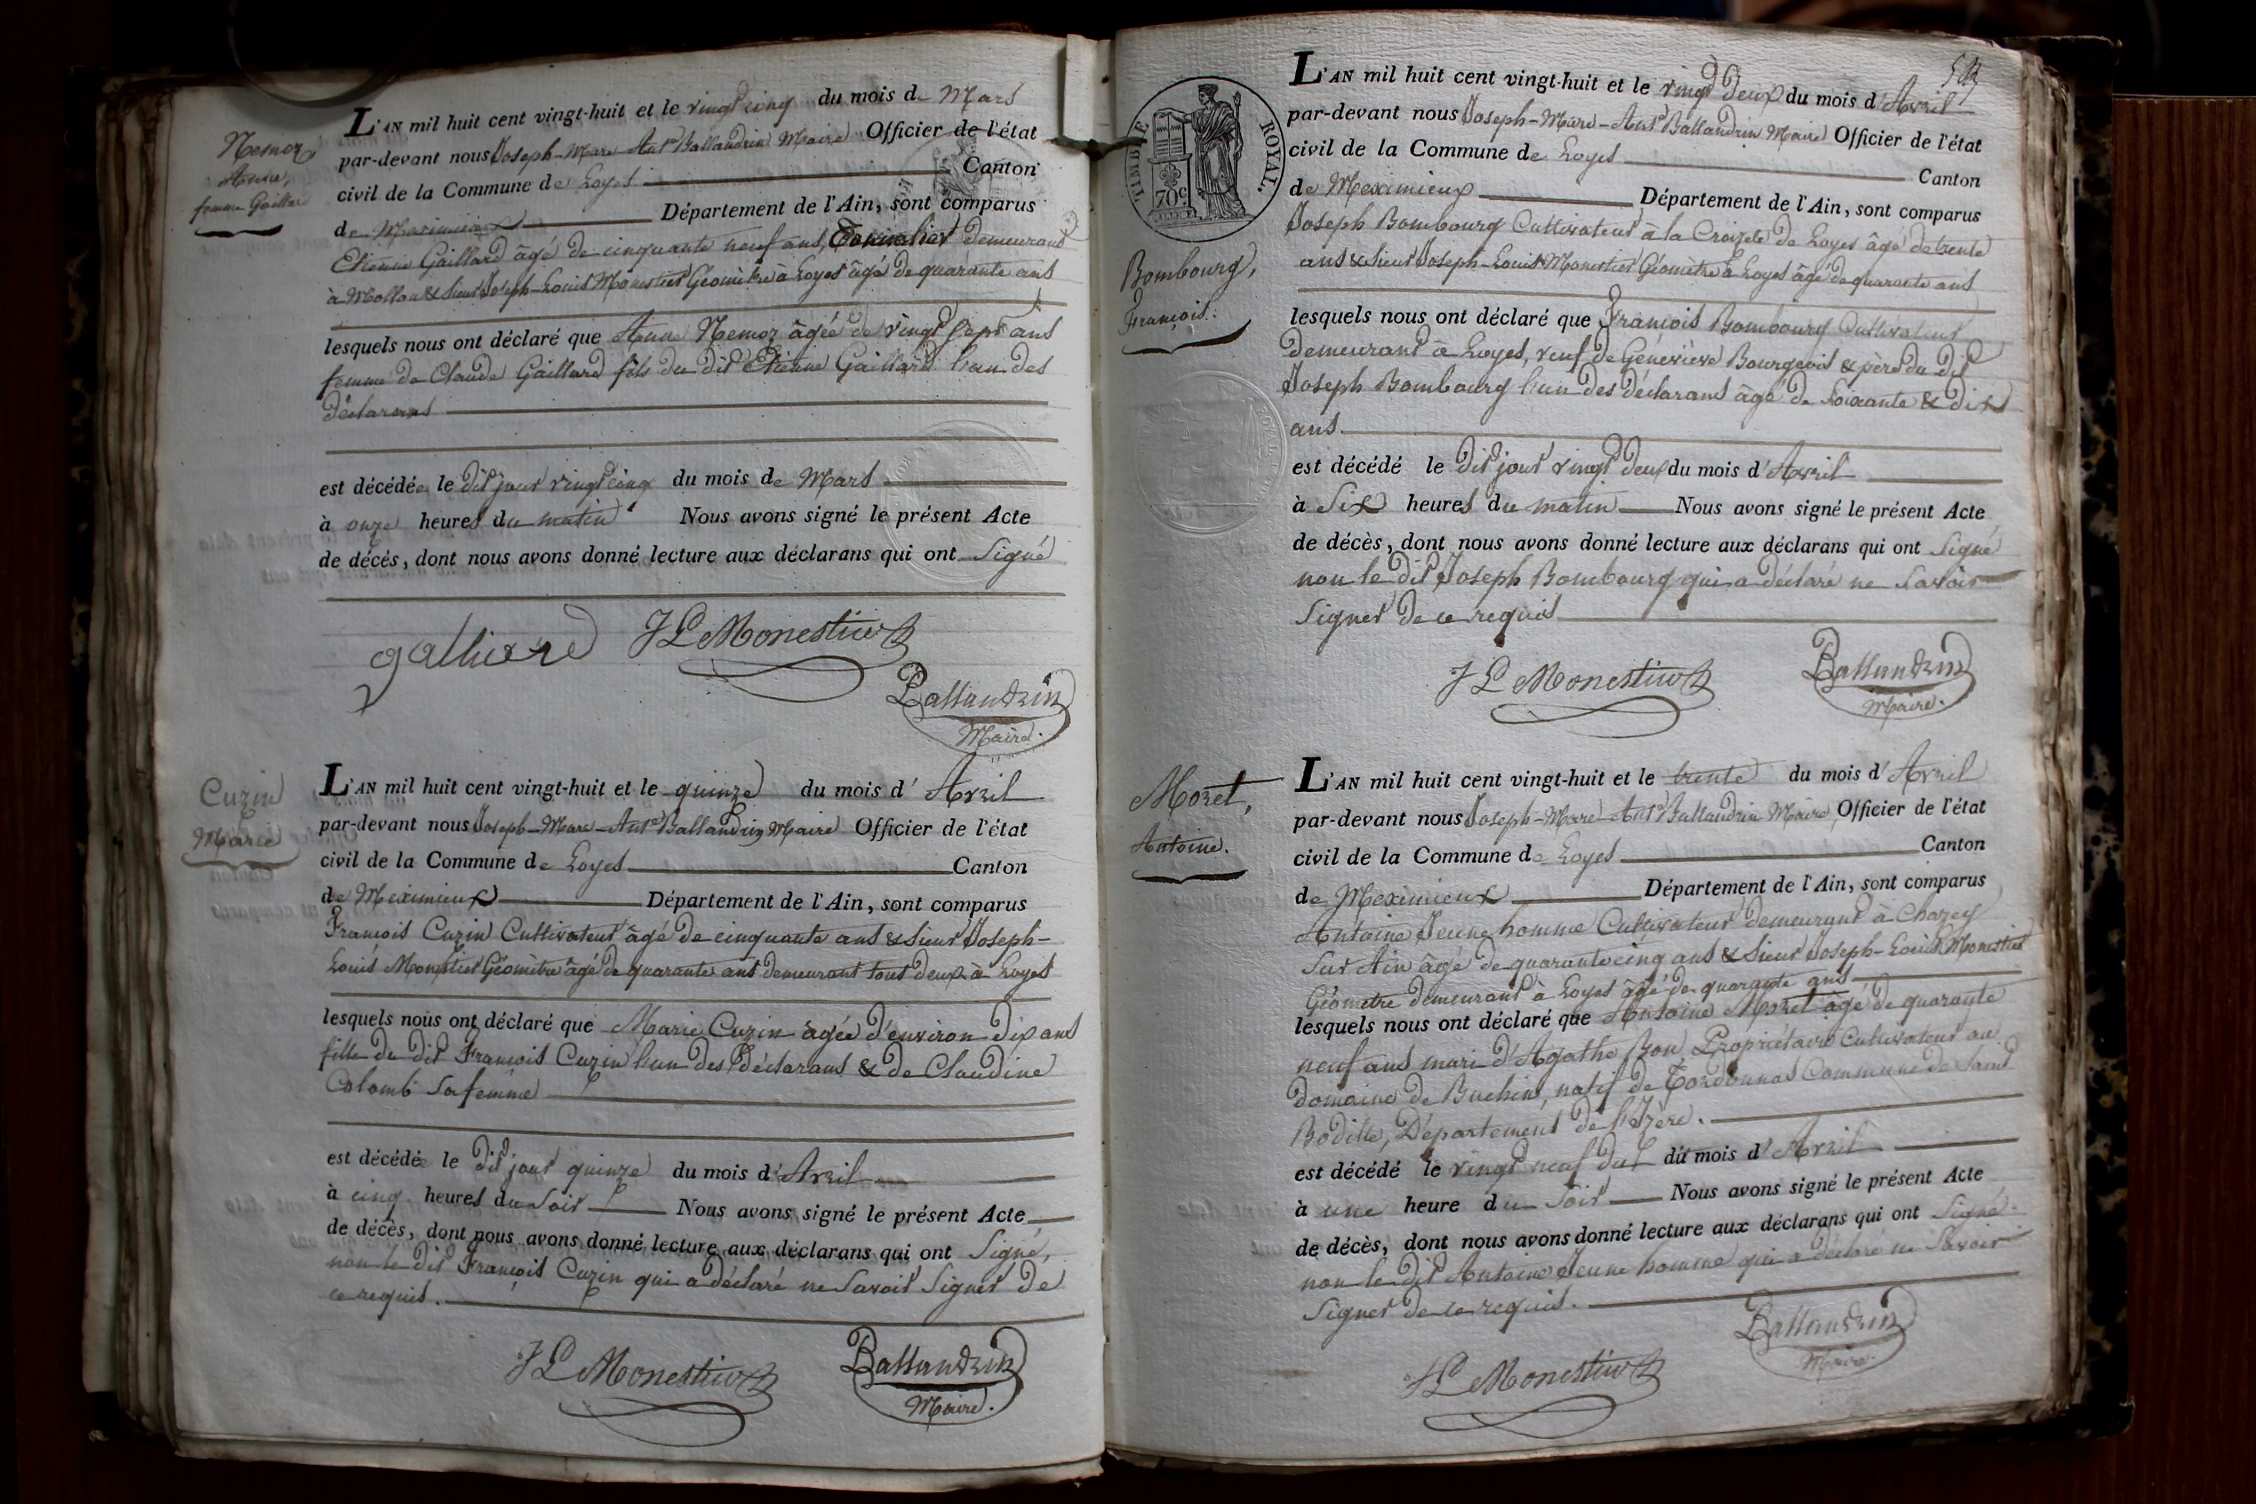 Nemoz
Anne,
femme Gaillard
L'AN mil huit cent vingt-huit et le vingt cinq du mois de Mars
par-devant nous Joseph-Marc-Ant.e Ballandrin Maire Officier de l'état
civil de la Commune de Loyes Canton
de Meximieux Département de l'Ain, sont comparus
Etienne Gaillard âgé de cinquante neuf ans, demeurant
à Mollon & sieur Joseph-Louis Monestier Géomètre à Loyes âgé de quarante ans
lesquels nous ont déclaré que Anne Nemoz âgée de vingt sept ans
femme de Claude Gaillard fils du dit Etienne Gaillard l'un des
déclarans
est décédée le dit jour vingt cinq du mois de Mars
à onze heures du matin Nous avons signé le présent Acte
de décès, dont nous avons donné lecture aux déclarans qui ont signé
galliard JL Monestier
Ballandrin
Maire.
Cuzin
Marie
L'AN mil huit cent vingt-huit et le quinze du mois d'Avril
par-devant nous Joseph-Marc-Ant.e Ballandrin Maire Officier de l'état
civil de la Commune de Loyes Canton
de Meximieux Département de l'Ain, sont comparus
François Cuzin Cultivateur âgé de cinquante ans & sieur Joseph-
Louis Monestier Géomètre âgé de quarante ans demeurant tous deux à Loyes
lesquels nous ont déclaré que Marie Cuzin âgée d'environ dix ans
fille du dit François Cuzin l'un des déclarans & de Claudine
Colomb sa femme
est décédée le dit jour quinze du mois d'Avril
à cinq heures du soir Nous avons signé le présent Acte
de décès, dont nous avons donné lecture aux déclarans qui ont signé,
non le dit François Cuzin qui a déclaré ne savoir signer de
ce requis.
JL Monestier Ballandrin
Maire.
TIMBRE ROYAL.
70c
Bombourg,
François.
L'AN mil huit cent vingt-huit et le vingt deux du mois d'Avril
par-devant nous Joseph-Marc-Ant.e Ballandrin Maire Officier de l'état
civil de la Commune de Loyes Canton
de Meximieux Département de l'Ain, sont comparus
Joseph Bombourg Cultivateur à la Croizete de Loyes âgé de trente
ans & sieur Joseph-Louis Monestier Géomètre à Loyes âgé de quarante ans
lesquels nous ont déclaré que François Bombourg Cultivateur
demeurant à Loyes, veuf de Géneviève Bourgeois & père du dit
Joseph Bombourg l'un des déclarans âgé de soixante & dix
ans
est décédé le dit jour vingt deux du mois d'Avril
à six heures du matin Nous avons signé le présent Acte
de décès, dont nous avons donné lecture aux déclarans qui ont signé
non le dit Joseph Bombourg qui a déclaré ne savoir
signer de ce requis
JL Monestier Ballandrin
Maire.
Moret,
Antoine.
L'AN mil huit cent vingt-huit et le trente du mois d'Avril
par-devant nous Joseph-Marc-Ant.e Ballandrin Maire Officier de l'état
civil de la Commune de Loyes Canton
de Meximieux Département de l'Ain, sont comparus
Antoine Jeune homme Cultivateur demeurant à Chazey
sur Ain âgé de quarante cinq ans & sieur Joseph-Louis Monestier
Géomètre demeurant à Loyes âgé de quarante ans
lesquels nous ont déclaré que Antoine Moret âgé de quarante
neuf ans mari d'Agathe Bon Propriétaire Cultivateur au
domaine de Buchin, natif de Tordonnas Commune de Saint
Bodille, Département de l'Izère.
est décédé le vingt neuf du dit mois d'Avril
à une heure du soir Nous avons signé le présent Acte
de décès, dont nous avons donné lecture aux déclarans qui ont signé
non le dit Antoine Jeune homme qui a déclaré ne savoir
signer de ce requis.
JL Monestier Ballandrin
Maire.